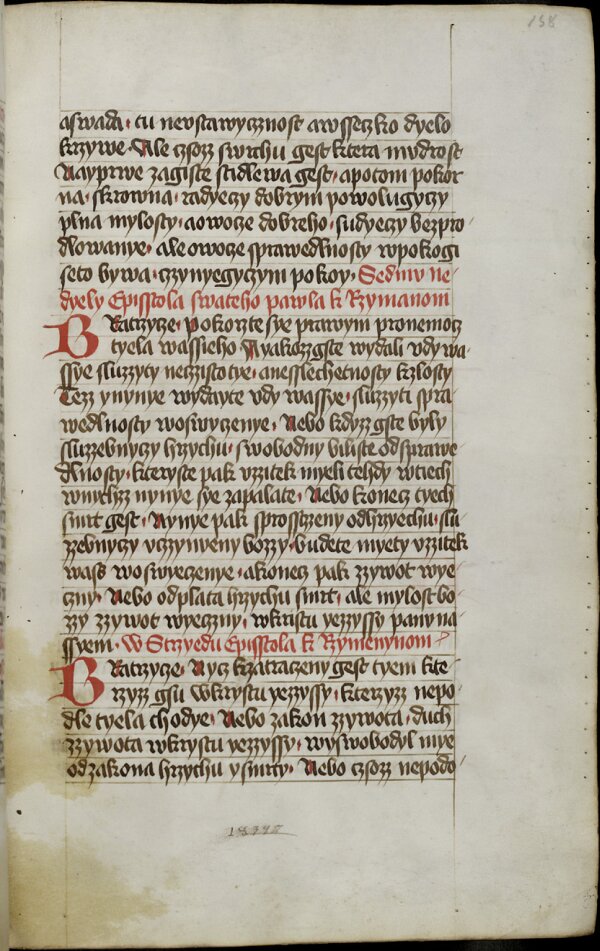 158
aswada · tu neustawycznost awsseczko dyelo
krzywe · Ale czozz swrchu gest ktera mudrost
Nayprwe zagiste stidlewa gest · apotom pokor
na · skrowna · radyeczy dobrym powolugyczy
plna mylosty · aowocze dobreho · sudyeczy bezpo
dlowanye · ale owocze sprawedlnosty wpokogi
seto bywa · czynyegyczym pokoy · Sedmu ne
dyely Episstola swateho pawla k Rzymanom
Bratrzye · pokorzte sye prawym pronemocz
tyela wassieho Ayakozz gste wydali vdy wa
ssye sluzzyty neczistotye · anesslechetnosty kzlosty
Tezz ynynye wydayte vdy wassye · sluzzyti spra
wedlnosty woswyczenye · Nebo kdyzz gste byly
sluzzebnyczy hrzychu · swobodny biliste od sprawe
dlnosty · kteryste pak vzzitek myeli tehdy wtiech
wnychzz nynye sye zapalate · Nebo konecz tyech
smrt gest · Nynye pak sprosstzeny odhrzyechu · slu
zzebnyczy vczynyeny bozzy · budete myety vzzitek
wass woswyeczenye · akonecz pak zzywot wye
czny · Nebo odplata hrzychu smrt · ale mylost bo
zzy zzywot wyeczny · wkristu yezzyssy panu na
ssyem · W Strzyedu Episstola k Rzymenynom
Bratrzye · Nycz kzatraczeny gest tyem kte
rzyzz gsu wkrystu yezzyssy · kterzyzz nepo
dle tyela chodye · Nebo zakon zzywota · duch
zzywota wkrystu yezzyssy · wyswobodyl mye
od zakona hrzychu ysmrty · Nebo czozz nepodo